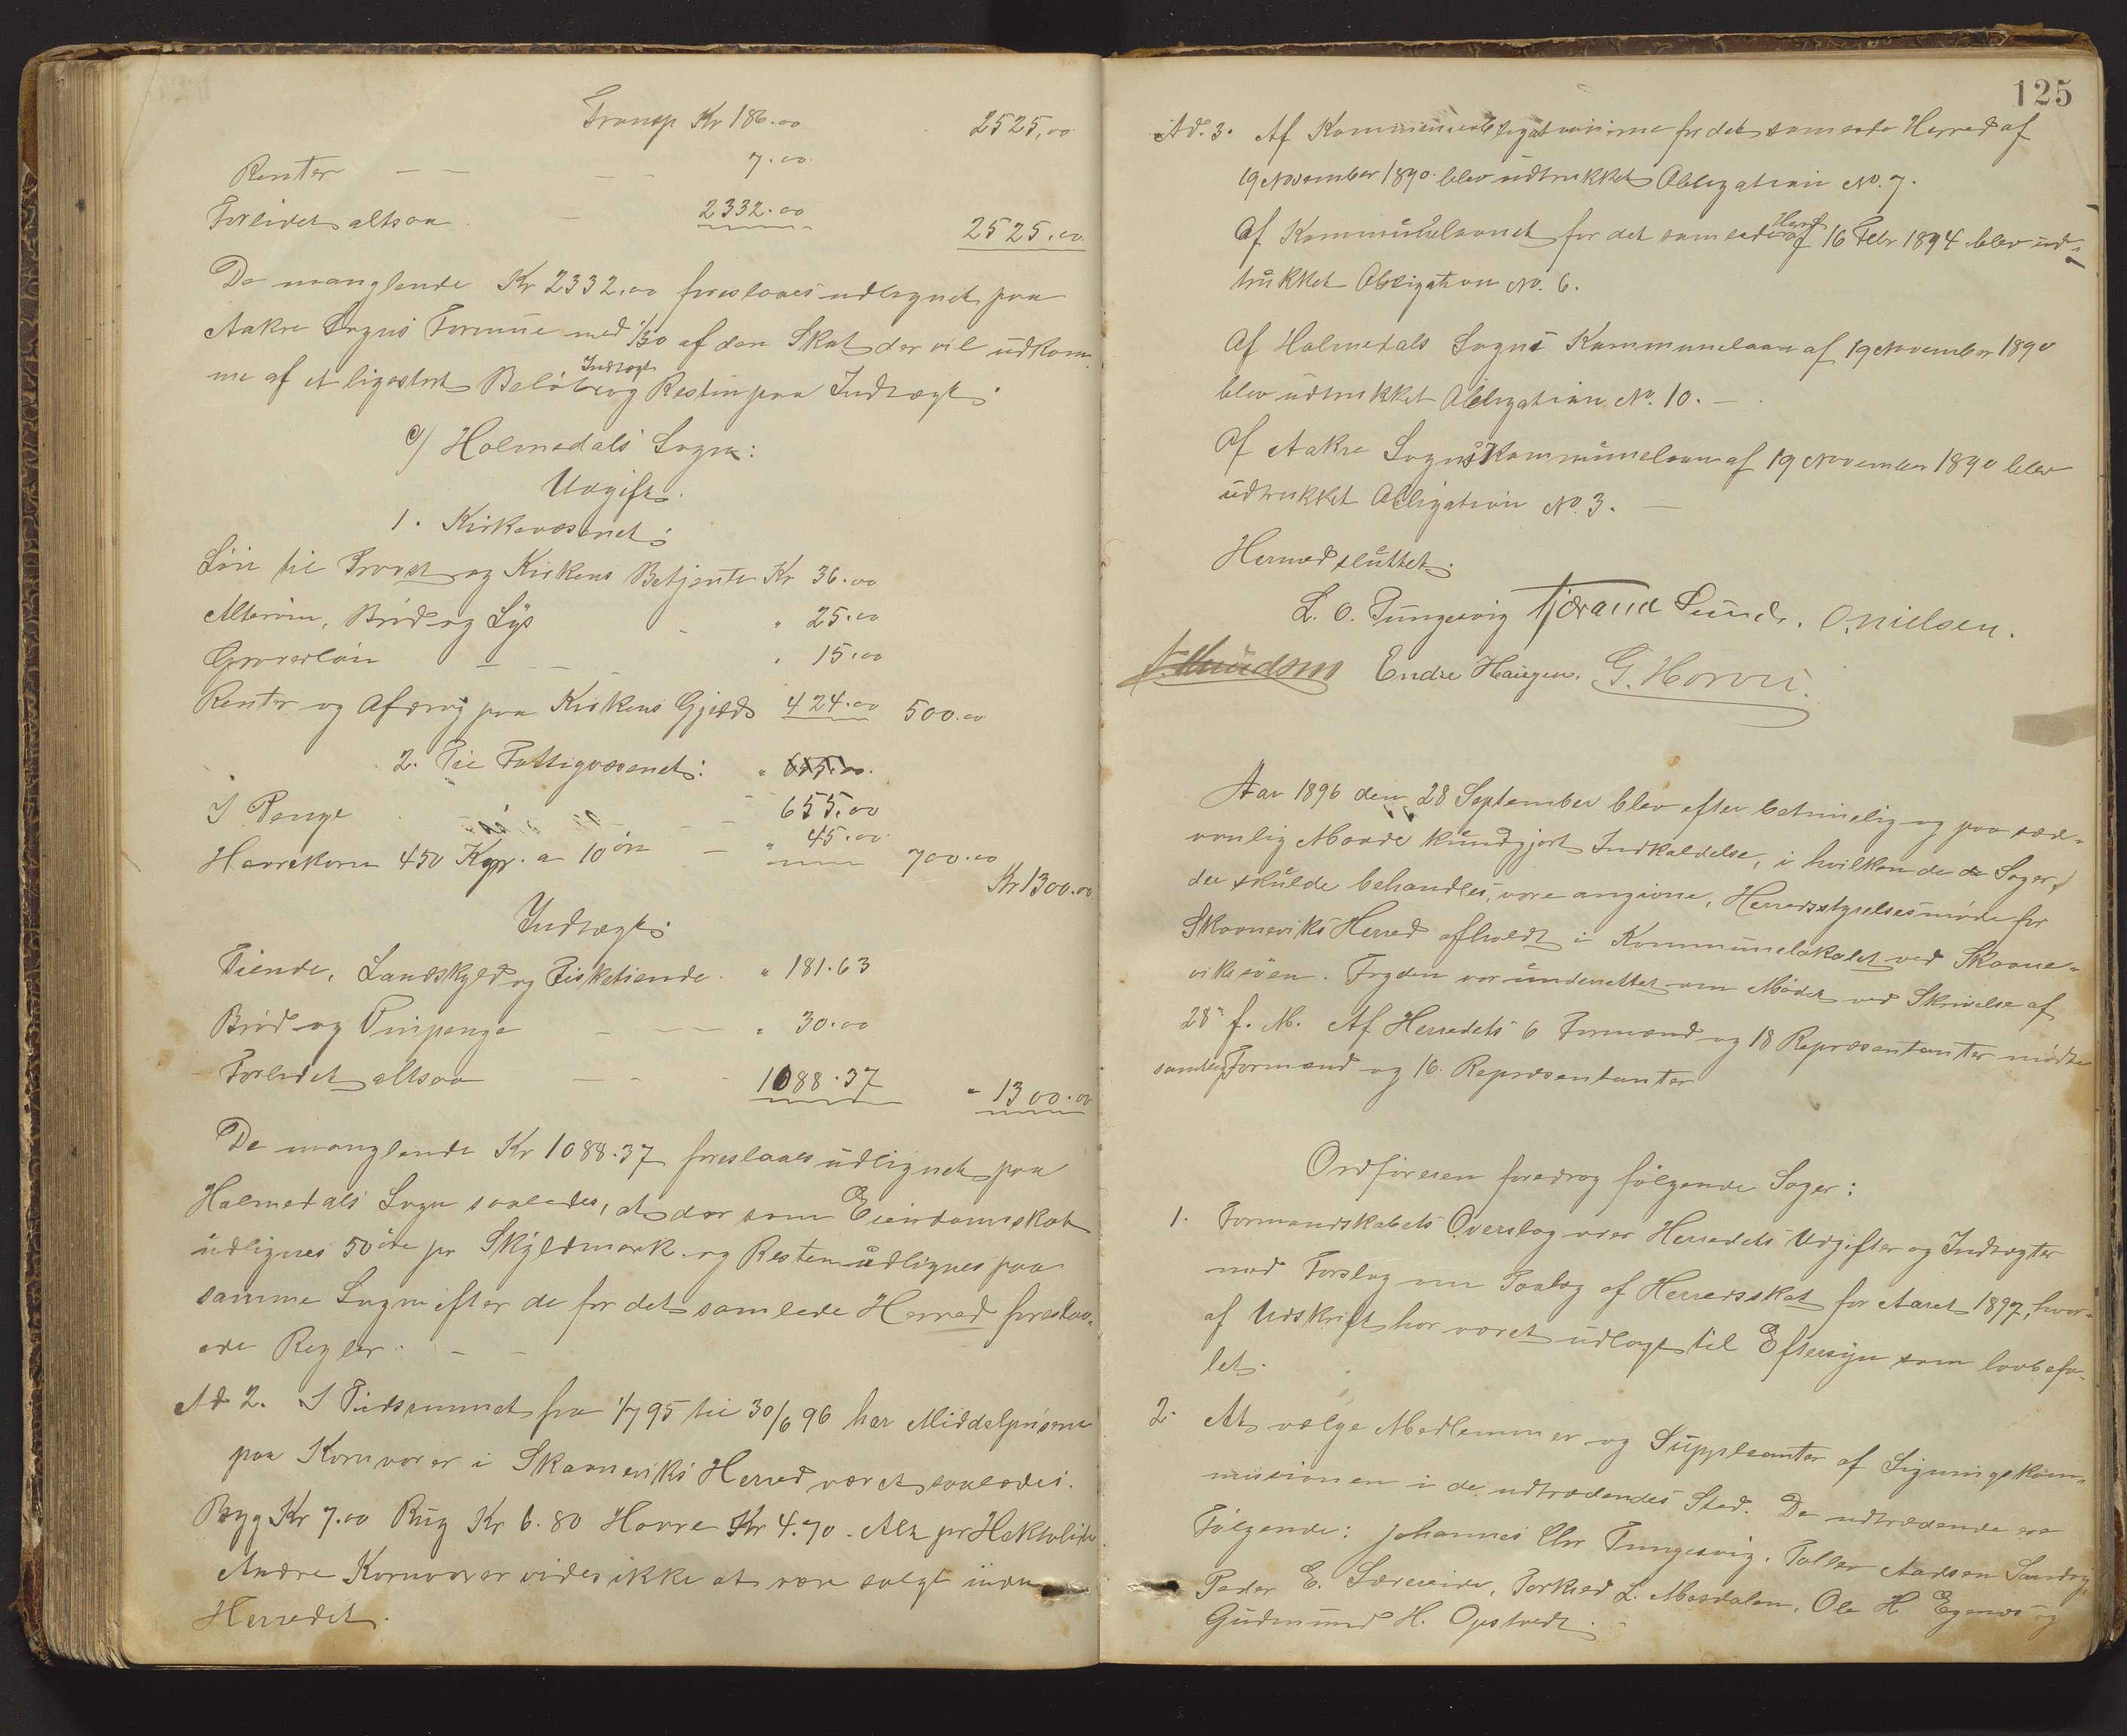 Transp Kr 186.00 2525,00
Renter — — — — 7.00
Forlidet altsaa — 2332.00 2525.00
De manglende Kr 2332.00 foreslaaes udlignet paa
Aakre Sogns Formue med 1/30 af den Skat der vil udkom-
me af et ligestort Beløb Indtægt og Resten paa Indtægt.
c/ Holmedals Sogn:
Udgift.
1. Kirkevæsenet:
Løn til Provst og Kirkens Betjente Kr 36.00
Altervin, Brød og Lys - " 25.00
Graverløn — — — " 15.00
Renter og Afdrag paa Kirkens Gjæld 424.00 500.00
2. Til Fattigvæsenet: "
I Penge — — 655.00
Havrekorn 450 Kgr. a 10 øre — " 45.00 700.00
Kr 1300.00
Indtægt:
Tiende, Landskyld og Fisketiende. " 181.63
Brød og Vinpenge — — — " 30.00
Forlidet altsaa — — - 1088.37 " 1300.00
De manglende Kr 1088.37 foreslaaes udlignet paa
Holmedals Sogn saaledes, at der som Eiendomsskat
udlignes 50 øre pr Skyldmark og Resten udlignes paa
samme Sogn efter de for det samlede Herred foreslaa-
ede Regler. — —
Ad 2. I Tidsrummet fra 1/7 95 til 30/6 96 har Middelprisene
paa Kornvarer i Skaaneviks Herred været saaledes.
Byg Kr 7.00 Rug Kr 6.80 Havre Kr 4.70. Alt pr Hektoliter.
Andre Kornvarer vides ikke at være solgt inden
Herredet.
125
Ad. 3. Af Kommuneobligationerne for det samlede Herred af
19 November 1890 blev udtrukket Obligation No. 7.
Af Kommunelaanet for det samlede Herred af 16 Febr 1894 blev ud-
trukket Obligation No. 6.
Af Holmedals Sogns Kommunelaan af 19 November 1890
blev udtrukket Obligation No. 10. —
Af Aakre Sogns Kommunelaan af 19 November 1890 blev
udtrukket Obligation No. 3. —
Hermed sluttet.
L. O. Tungesvig Tjerand Sunde. O. Nielsen.
Endre Haugen. G. Horvei.
Aar 1896 den 28 September blev efter betimelig og paa sæd-
vanlig Maade kundgjort Indkaldelse, i hvilken de Sager,
der skulde behandles, vare angivne, Herredsstyrelsesmøde for
Skaaneviks Herred afholdt i Kommunelokalet ved Skaane-
viksøen. Fogden var underrettet om Mødet ved Skrivelse af
28 f. M. Af Herredets 6 Formænd og 18 Repræsentanter mødte
samtlige Formænd og 16 Repræsentanter
Ordføreren foredrog følgende Sager:
1. Formandskabets Overslag over Herredets Udgifter og Indtægter
med Forslag om Paalæg af Herredsskat for Aaret 1897, hvor-
af Udskrift har været udlagt til Eftersyn som lovbefa-
let.
2. At vælge Medlemmer og Suppleanter af Ligningskom-
missionen i de udtrædendes Sted. De udtrædende ere
Følgende: Johannes Chr Tungesvig, Tollev Aadsen Sandvig,
Peder E. Sørereide, Torkild L. Mosdalen, Ole H. Egenes og
Gudmund H. Opstvedt.